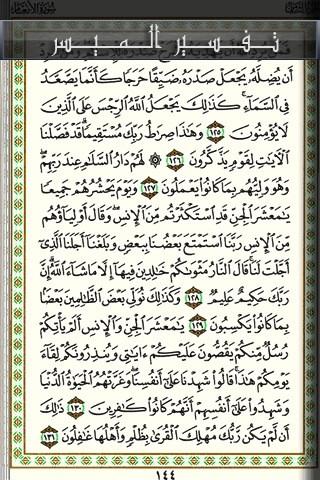 سُورَةُ الأَنْعَامِ
تفسير الميسر
أَن يُضِلَّهُۥ يَجْعَلْ صَدْرَهُۥ ضَيِّقًا حَرَجًا كَأَنَّمَا يَصَّعَّدُ
فِى ٱلسَّمَآءِ ۚ كَذَٰلِكَ يَجْعَلُ ٱللَّهُ ٱلرِّجْسَ عَلَى ٱلَّذِينَ
لَا يُؤْمِنُونَ ١٢٥ وَهَٰذَا صِرَٰطُ رَبِّكَ مُسْتَقِيمًا ۗ قَدْ فَصَّلْنَا
ٱلْـَٔايَٰتِ لِقَوْمٍ يَذَّكَّرُونَ ١٢٦ ۞ لَهُمْ دَارُ ٱلسَّلَٰمِ عِندَ رَبِّهِمْ ۖ
وَهُوَ وَلِيُّهُم بِمَا كَانُوا۟ يَعْمَلُونَ ١٢٧ وَيَوْمَ يَحْشُرُهُمْ جَمِيعًا
يَٰمَعْشَرَ ٱلْجِنِّ قَدِ ٱسْتَكْثَرْتُم مِّنَ ٱلْإِنسِ ۖ وَقَالَ أَوْلِيَآؤُهُم
مِّنَ ٱلْإِنسِ رَبَّنَا ٱسْتَمْتَعَ بَعْضُنَا بِبَعْضٍ وَبَلَغْنَآ أَجَلَنَا ٱلَّذِىٓ
أَجَّلْتَ لَنَا ۚ قَالَ ٱلنَّارُ مَثْوَىٰكُمْ خَٰلِدِينَ فِيهَآ إِلَّا مَا شَآءَ ٱللَّهُ ۗ إِنَّ
رَبَّكَ حَكِيمٌ عَلِيمٌ ١٢٨ وَكَذَٰلِكَ نُوَلِّى بَعْضَ ٱلظَّٰلِمِينَ بَعْضًۢا
بِمَا كَانُوا۟ يَكْسِبُونَ ١٢٩ يَٰمَعْشَرَ ٱلْجِنِّ وَٱلْإِنسِ أَلَمْ يَأْتِكُمْ
رُسُلٌ مِّنكُمْ يَقُصُّونَ عَلَيْكُمْ ءَايَٰتِى وَيُنذِرُونَكُمْ لِقَآءَ
يَوْمِكُمْ هَٰذَا ۚ قَالُوا۟ شَهِدْنَا عَلَىٰٓ أَنفُسِنَا ۖ وَغَرَّتْهُمُ ٱلْحَيَوٰةُ ٱلدُّنْيَا
وَشَهِدُوا۟ عَلَىٰٓ أَنفُسِهِمْ أَنَّهُمْ كَانُوا۟ كَٰفِرِينَ ١٣٠ ذَٰلِكَ
أَن لَّمْ يَكُن رَّبُّكَ مُهْلِكَ ٱلْقُرَىٰ بِظُلْمٍ وَأَهْلُهَا غَٰفِلُونَ ١٣١
١٤٤